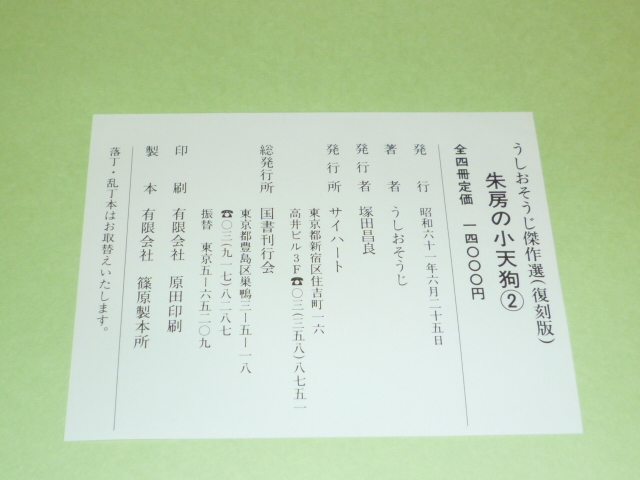 うしおそうじ傑作選(復刻版)
朱房の小天狗②
全四冊定価 一四〇〇〇円
発行 昭和六十一年六月二十五日
著者 うしおそうじ
発行者 塚田昌良
発行所 サイハート
東京都新宿区住吉町一六
高井ビル3F☎〇三(三五八)八七五一
総発行所 国書刊行会
東京都豊島区巣鴨三―五―一八
☎〇三(九一七)八二八七
振替 東京五―六五二〇九
印刷 有限会社 原田印刷
製本 有限会社 篠原製本所
落丁・乱丁本はお取替えいたします。